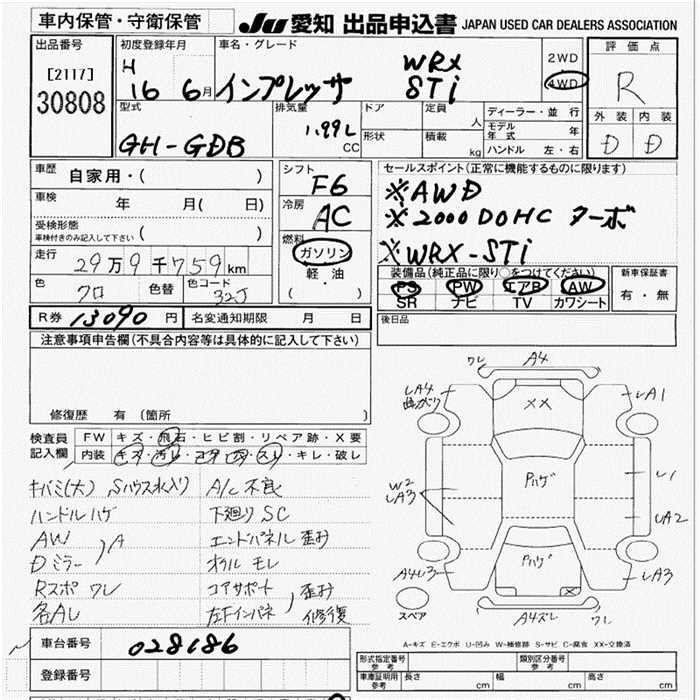 車内保管・守衛保管
JU 愛知 出品申込書 JAPAN USED CAR DEALERS ASSOCIATION
出品番号
[2117]
30808
初度登録年月
H
16 6月
車名・グレード
インプレッサ
WRX
STi
2WD
4WD
評価点
R
外装 内装
D D
型式
GH-GDB
排気量
1.99L
CC
ドア
形状
定員
人
積載
kg
ディーラー・並行
モデル年式 年
ハンドル 左・右
車歴
自家用・( )
車検
年 月( 日)
受検形態
車検付きのみ記入して下さい ( )
走行
29万9千759km
色
クロ
色替
色コード
32J
シフト
F6
冷房
AC
燃料
ガソリン
軽・油
( )
セールスポイント(正常に機能するものに限ります)
※AWD
※2000DOHC ターボ
※WRX-STi
装備品(純正品に限り○をつけてください)
PS PW エアB AW
SR ナビ TV カワシート
新車保証書
有・無
R券 13090円
名変通知期限 月 日
後日品
注意事項申告欄(不具合内容等は具体的に記入して下さい)
修復歴 有 (箇所 )
検査員
記入欄
FW キズ・飛石・ヒビ割・リペア跡・X要
内装 キズ・汚レ・コゲ・穴・スレ・キレ・破レ
キバミ(大) Sハウス水入り
ハンドルハゲ
AW
Dミラー
A
Rスポ ワレ
各AL
A/C不良
下廻りSC
エンドパネル歪み
オイルモレ
コアサポート
左Fインパネ
歪み
修復
ワレ A4
LA4
曲がり
LA1
XX
Pハゲ
W2
LA3
L1
LA2
Pハゲ
A4L3
LA3
X
スペア
A4ズレ ワレ
A-キズ E-エクボ U-凹み W-補修跡 S-サビ C-腐食 XX-交換済
車台番号
028186
登録番号
形式指定番号
参考
類別区分番号
参考
車庫証明用
参考
長さ cm 幅 cm 高さ cm